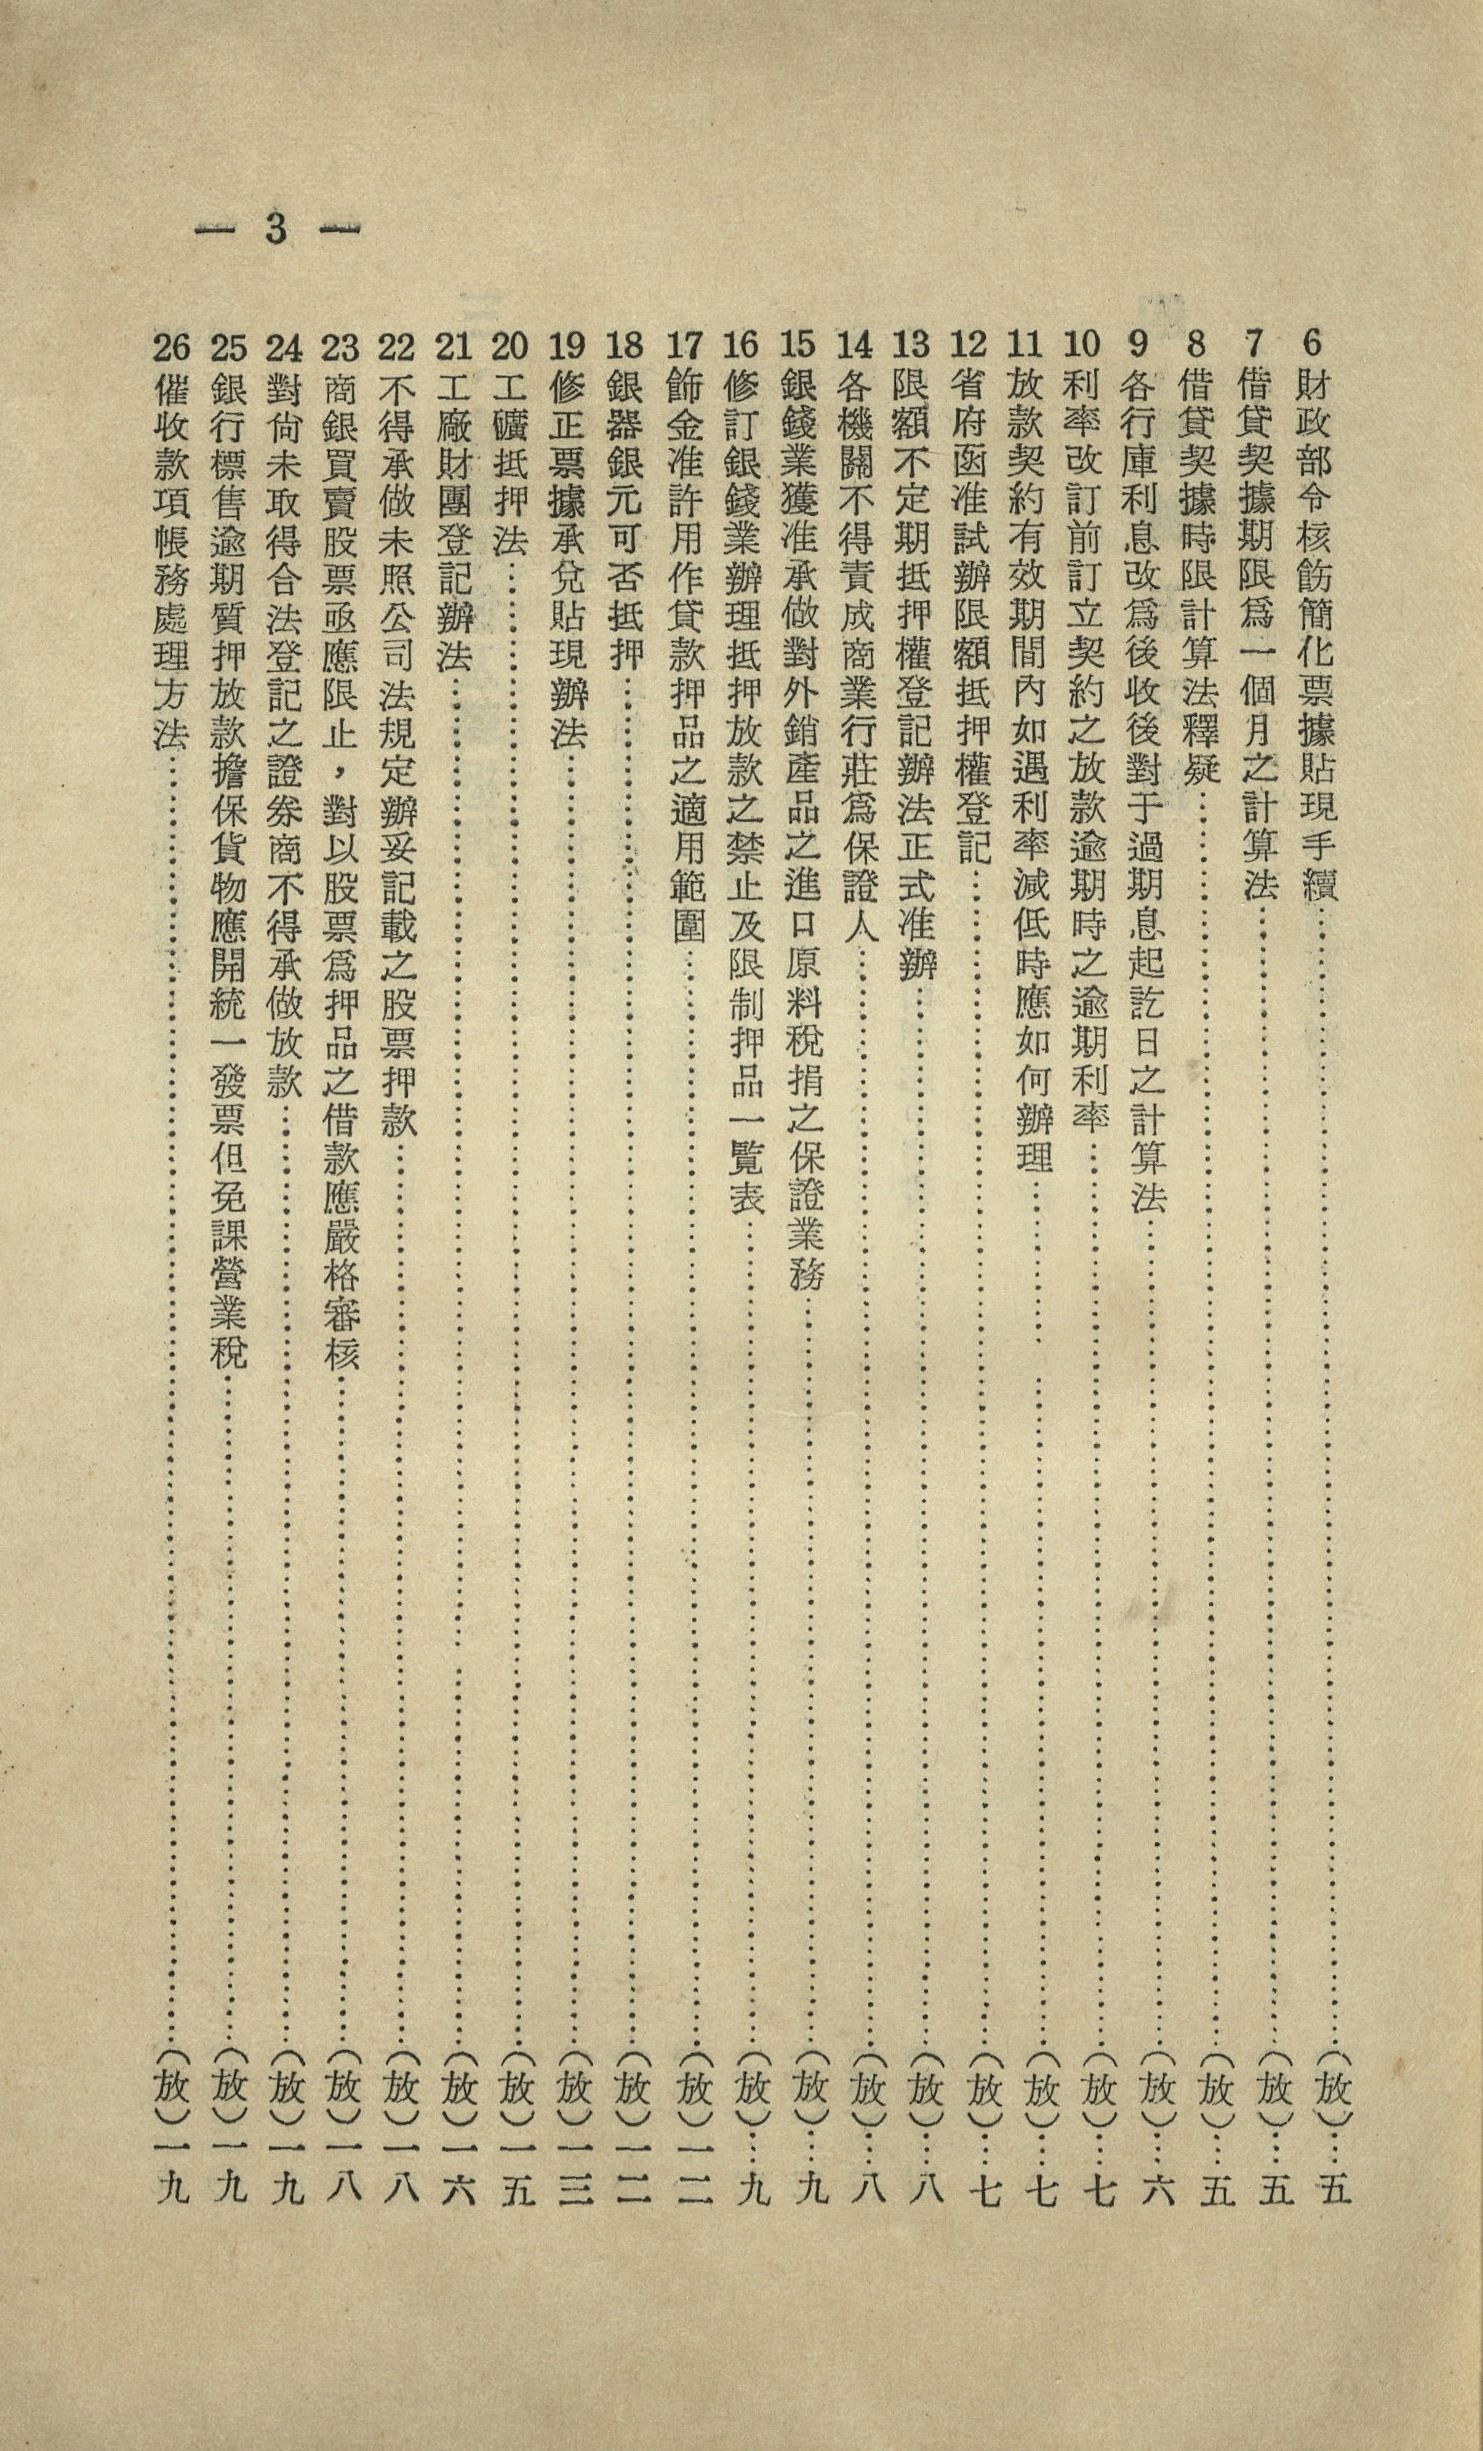 — 3 —
6 財政部令核飭簡化票據貼現手續……（放）…五
7 借貸契據期限爲一個月之計算法……（放）…五
8 借貸契據時限計算法釋疑……（放）…五
9 各行庫利息改爲後收後對于過期息起訖日之計算法……（放）…六
10 利率改訂前訂立契約之放款逾期時之逾期利率……（放）…七
11 放款契約有效期間內如遇利率減低時應如何辦理……（放）…七
12 省府函准試辦限額抵押權登記……（放）…七
13 限額不定期抵押權登記辦法正式准辦……（放）…八
14 各機關不得責成商業行莊爲保證人……（放）…八
15 銀錢業獲准承做對外銷產品之進口原料稅捐之保證業務……（放）…九
16 修訂銀錢業辦理抵押放款之禁止及限制押品一覽表……（放）…九
17 飾金准許用作貸款押品之適用範圍……（放）一二
18 銀器銀元可否抵押……（放）一二
19 修正票據承兌貼現辦法……（放）一三
20 工礦抵押法……（放）一五
21 工廠財團登記辦法……（放）一六
22 不得承做未照公司法規定辦妥記載之股票押款……（放）一八
23 商銀買賣股票亟應限止，對以股票爲押品之借款應嚴格審核……（放）一八
24 對尙未取得合法登記之證券商不得承做放款……（放）一九
25 銀行標售逾期質押放款擔保貨物應開統一發票但免課營業稅……（放）一九
26 催收款項帳務處理方法……（放）一九